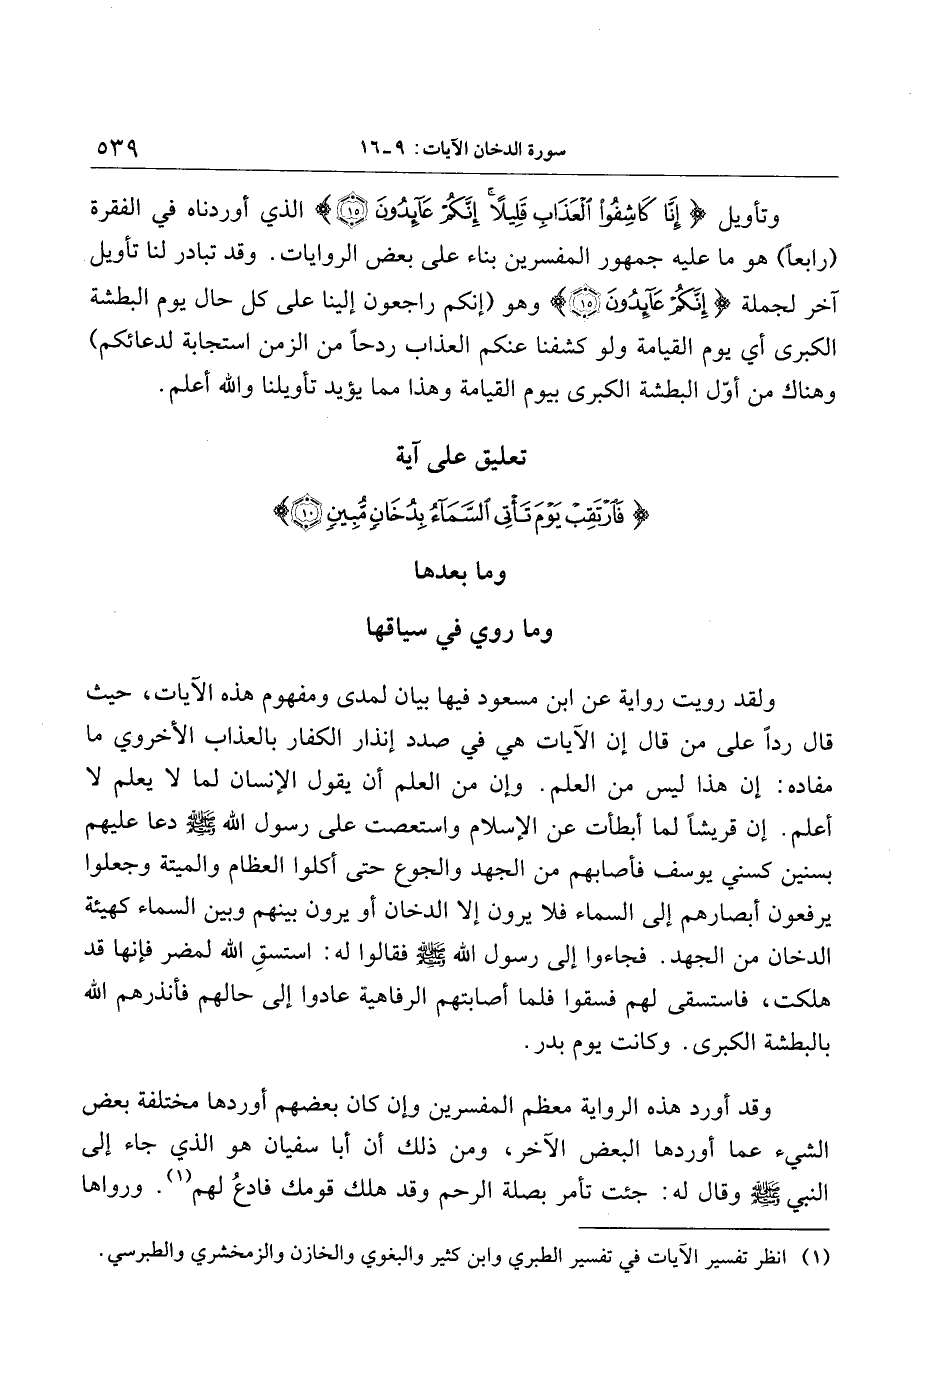 سورة الدخان الآيات: ٩ـ١٦ ٥٣٩
وتأويل ﴿ إِنَّا كَاشِفُواْ ٱلْعَذَابِ قَلِيلًاۚ إِنَّكُمْ عَآئِدُونَ ١٥ ﴾ الذي أوردناه في الفقرة
(رابعاً) هو ما عليه جمهور المفسرين بناء على بعض الروايات. وقد تبادر لنا تأويل
آخر لجملة ﴿ إِنَّكُمْ عَآئِدُونَ ١٥ ﴾ وهو (إنكم راجعون إلينا على كل حال يوم البطشة
الكبرى أي يوم القيامة ولو كشفنا عنكم العذاب ردحاً من الزمن استجابة لدعائكم)
وهناك من أوّل البطشة الكبرى بيوم القيامة وهذا مما يؤيد تأويلنا والله أعلم.
تعليق على آية
﴿ فَٱرْتَقِبْ يَوْمَ تَأْتِى ٱلسَّمَآءُ بِدُخَانٍ مُّبِينٍ ١٠ ﴾
وما بعدها
وما روي في سياقها
ولقد رويت رواية عن ابن مسعود فيها بيان لمدى ومفهوم هذه الآيات، حيث
قال رداً على من قال إن الآيات هي في صدد إنذار الكفار بالعذاب الأخروي ما
مفاده: إن هذا ليس من العلم. وإن من العلم أن يقول الإنسان لما لا يعلم لا
أعلم. إن قريشاً لما أبطأت عن الإسلام واستعصت على رسول الله ﷺ دعا عليهم
بسنين كسني يوسف فأصابهم من الجهد والجوع حتى أكلوا العظام والميتة وجعلوا
يرفعون أبصارهم إلى السماء فلا يرون إلا الدخان أو يرون بينهم وبين السماء كهيئة
الدخان من الجهد. فجاءوا إلى رسول الله ﷺ فقالوا له: استسقِ الله لمضر فإنها قد
هلكت، فاستسقى لهم فسقوا فلما أصابتهم الرفاهية عادوا إلى حالهم فأنذرهم الله
بالبطشة الكبرى. وكانت يوم بدر.
وقد أورد هذه الرواية معظم المفسرين وإن كان بعضهم أوردها مختلفة بعض
الشيء عما أوردها البعض الآخر، ومن ذلك أن أبا سفيان هو الذي جاء إلى
النبي ﷺ وقال له: جئت تأمر بصلة الرحم وقد هلك قومك فادعُ لهم(١). ورواها
(١) انظر تفسير الآيات في تفسير الطبري وابن كثير والبغوي والخازن والزمخشري والطبرسي.